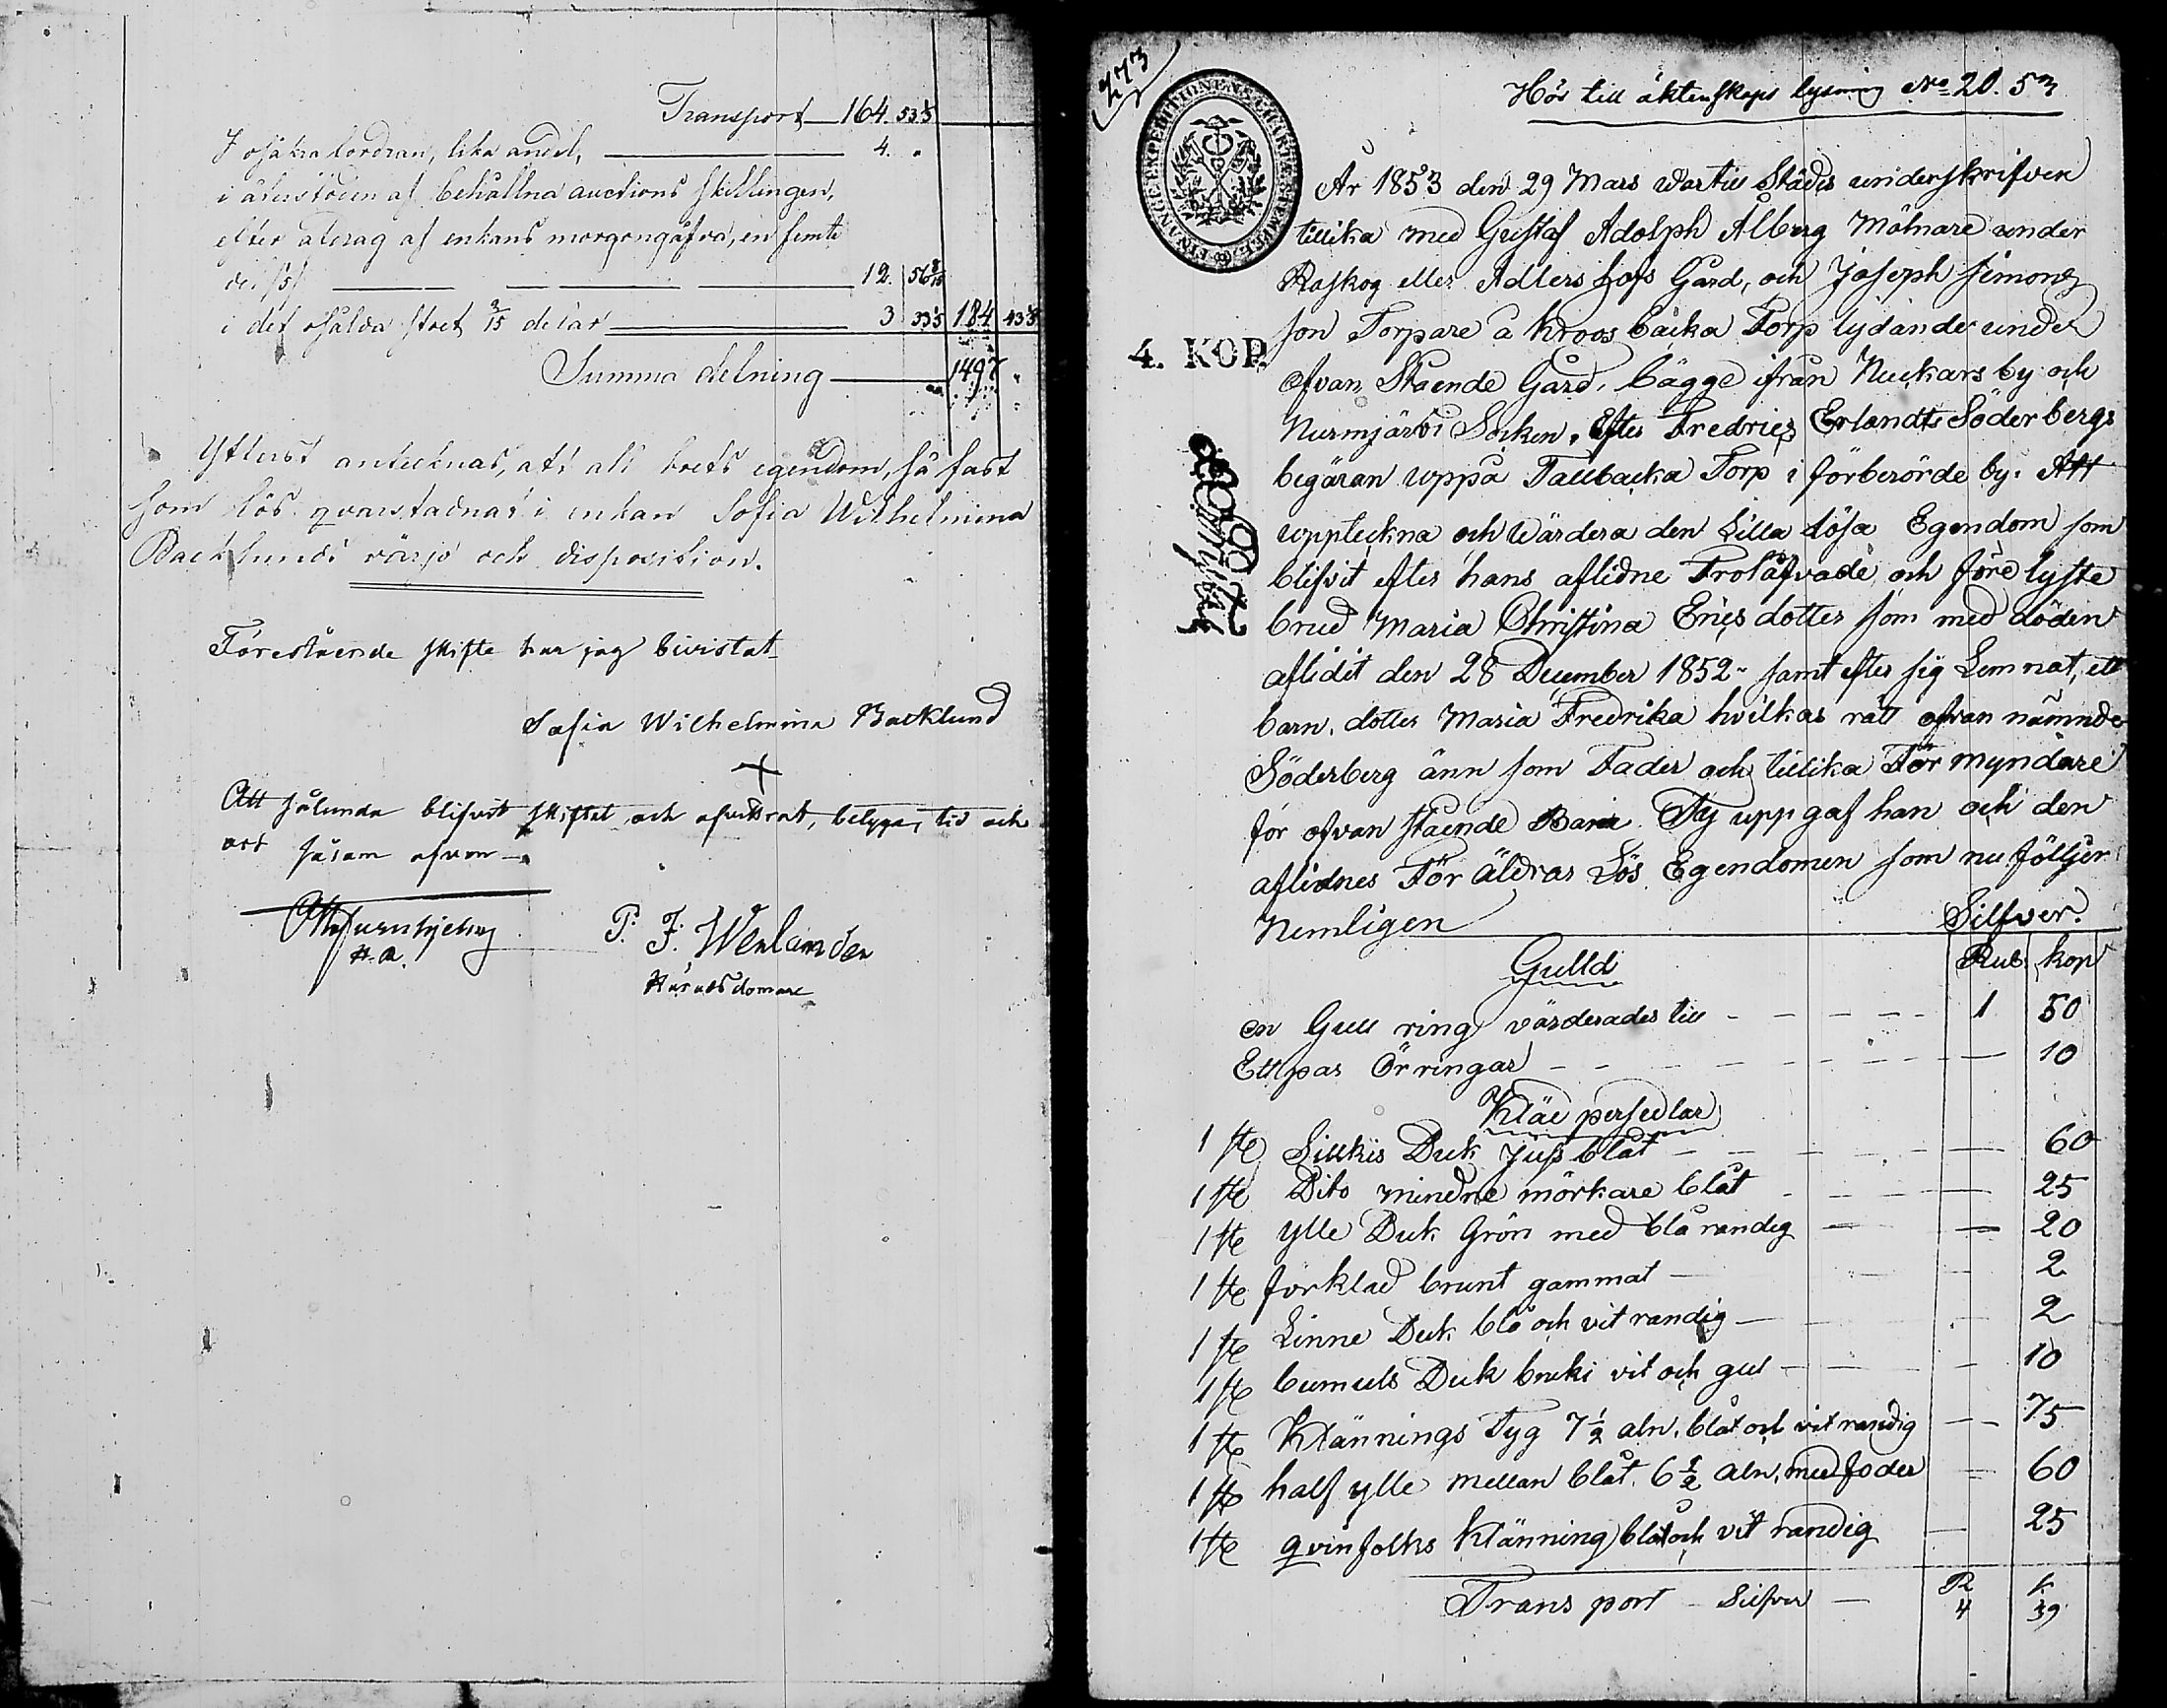 Transport 164. 53⅓
I osäkra fordran, lika andel, 4. "
i återstoden af behållna auctions skillingen,
efter afdrag af enkans morgongåfva, en femte
del ⅕ 12. 56
i det osålda 2/15 delar 3 33⅓ 184 43⅓
Summa delning 1497 "
Ytterst antecknas, att all boets egendom, så fast
som lös qvarstadnar i enkan Sofia Wilhelmina
Backlunds värjo och disposition.
Förestående skifte har jag bivistat
Sofia Wilhelmina Backlund
Att sålunda blifvit skiftat och afvittrat, betyga, tid och
ort såsom ofvan
P. F. Wenlander
Häradsdomare
273
Hör till äktenskaps lysning No 20. 53
FINANCE EXPEDITIONENS CHARTÆ STEMPEL
4. KOP.
År 1853 den 29 Mars var till Städes underskrifven
tillika med Gustaf Adolph Ålberg Mölnare under
Raskog eller Adlers hofs Gård, och Joseph Simons
son Torpare å Kroos backa Torp lydande under
ofvan Stående Gård, bägge ifrån Nuckars by och
Nurmjärvi Socken, Efter Fredrics Erlandts Söderbergs
begäran uppå Tallbacka Torp i förberörde by. Att
uppteckna och Värdera den Lilla lösa Egendom som
blifvit efter hans aflidne Trolåfvade och före lyste
brud Maria Christina Ericsdotter som med döden
aflidit den 28 December 1852 samt efter sig Lemnat, ett
barn, dotter Maria Fredrika hvilkas rätt ofvan nämnde
Söderberg änn som Fader och tillika För myndare
för ofvan stående Barn Ty upp gaf han och den
aflidnes För äldrar Lös Egendomen som nu följer
Nemligen Silfver.
Gulld Rub kop
en Gull ring värderades till 1 50
Ett par Örringar 10
Kläe persedlar
1 st Sillkis Duk ljus blåt 60
1 st Dito mindre mörkare blåt 25
1 st ylle Duk Grön med blå randig 20
1 st förkläd brunt gammat 2
1 st Linne Duk blå och vit randig 2
1 st bumuls Duk bruki vit och gul 10
1 st Klännings Tyg 7½ aln. blåt och vit randig 75
1 st half ylle mellan blåt 6½ aln, med foder 60
1 st qvinfolks Klänning blåt och vit randig 25
Trans port Silfver R 4 k 39